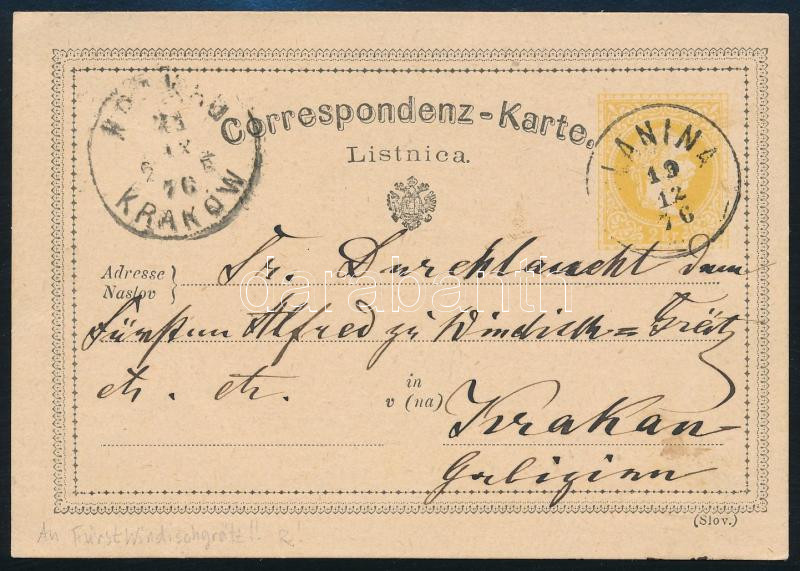 Correspondenz-Karte.
Listnica.
KRAKÓW
76
ZANINA
19
12
76
Adresse
Naslov
Sr. Durchlaucht dem
Fürsten Alfred zu Windisch=Grätz
etc. etc.
in
v (na)
Krakau
Galizien
(Slov.)
An Fürst Windischgrätz!! R!
darabanth